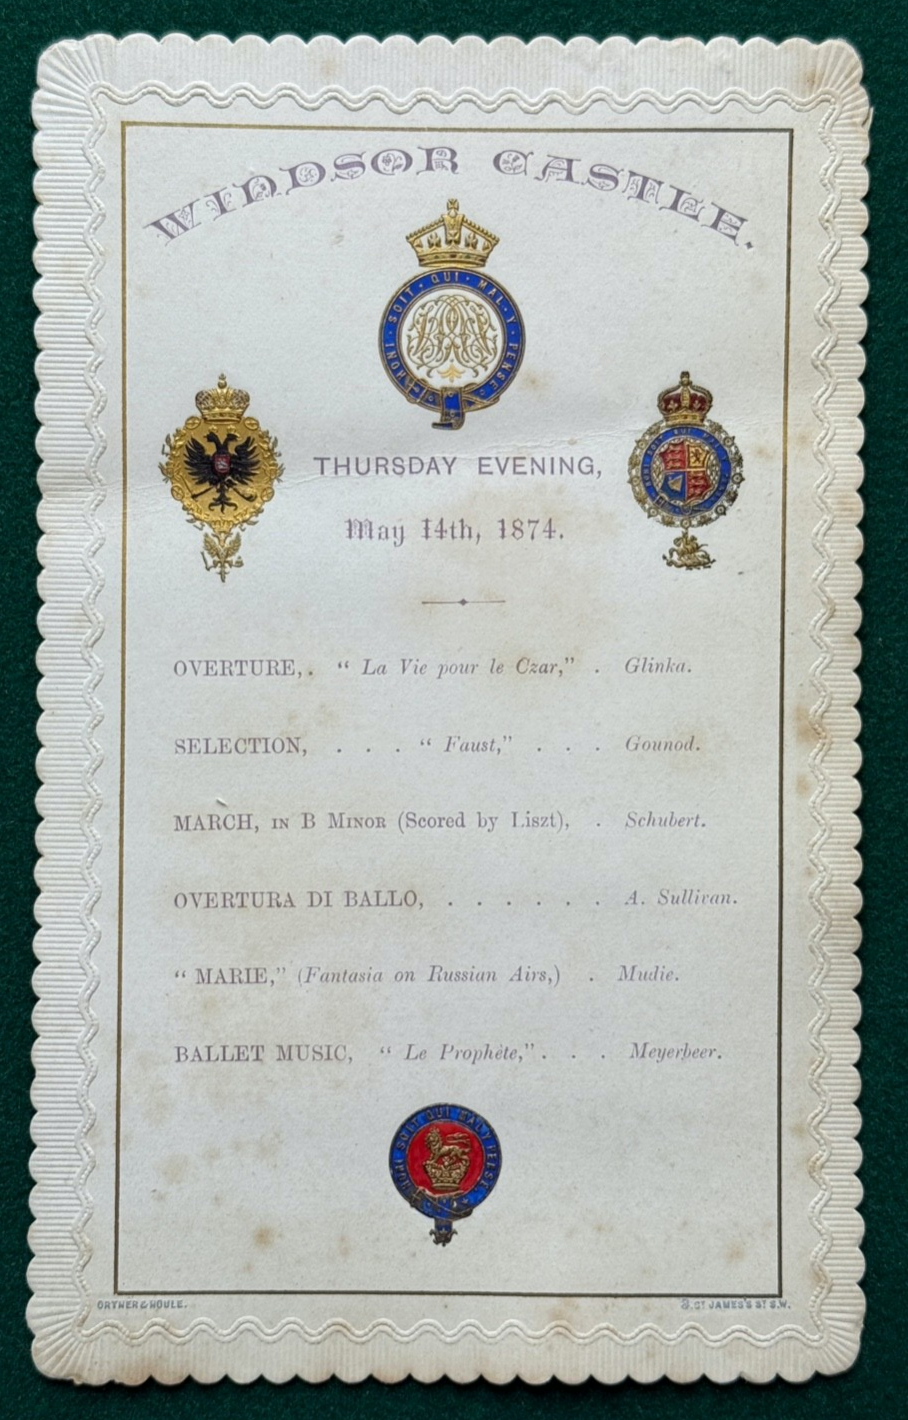 WINDSOR CASTLE.
HONI · SOIT · QUI · MAL · Y · PENSE
THURSDAY EVENING,
May 14th, 1874.
OVERTURE,. “ La Vie pour le Czar,” . Glinka.
SELECTION, . . . “ Faust,” . . . Gounod.
MARCH, IN B MINOR (Scored by Liszt), . Schubert.
OVERTURA DI BALLO, . . . . . . A. Sullivan.
“ MARIE,” (Fantasia on Russian Airs,) . Mudie.
BALLET MUSIC, “ Le Prophète,” . . . Meyerbeer.
HONI SOIT QUI MAL Y PENSE
ORTNER & HOULE. 3, ST JAMES'S ST S.W.